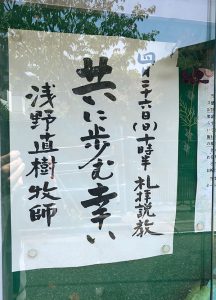 四月二六日(日)十時半 礼拝説教
共に歩む幸い
浅野直樹牧師